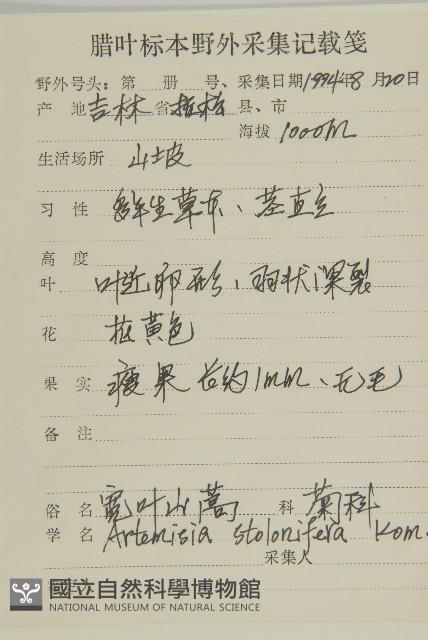 腊叶标本野外采集记载笺
野外号头：第 册 号、采集日期1994年8月20日
产 地 吉林省 县、市
海拔 1000m
生活场所 山坡
习 性 多年生草本、茎直立
高 度
叶 叶近卵形、羽状深裂
花 黄色
果 实 瘦果长约1mm、无毛
备 注
俗 名 宽叶山蒿 科 菊科
学 名 Artemisia stolonifera Kom.
采集人
國立自然科學博物館
NATIONAL MUSEUM OF NATURAL SCIENCE